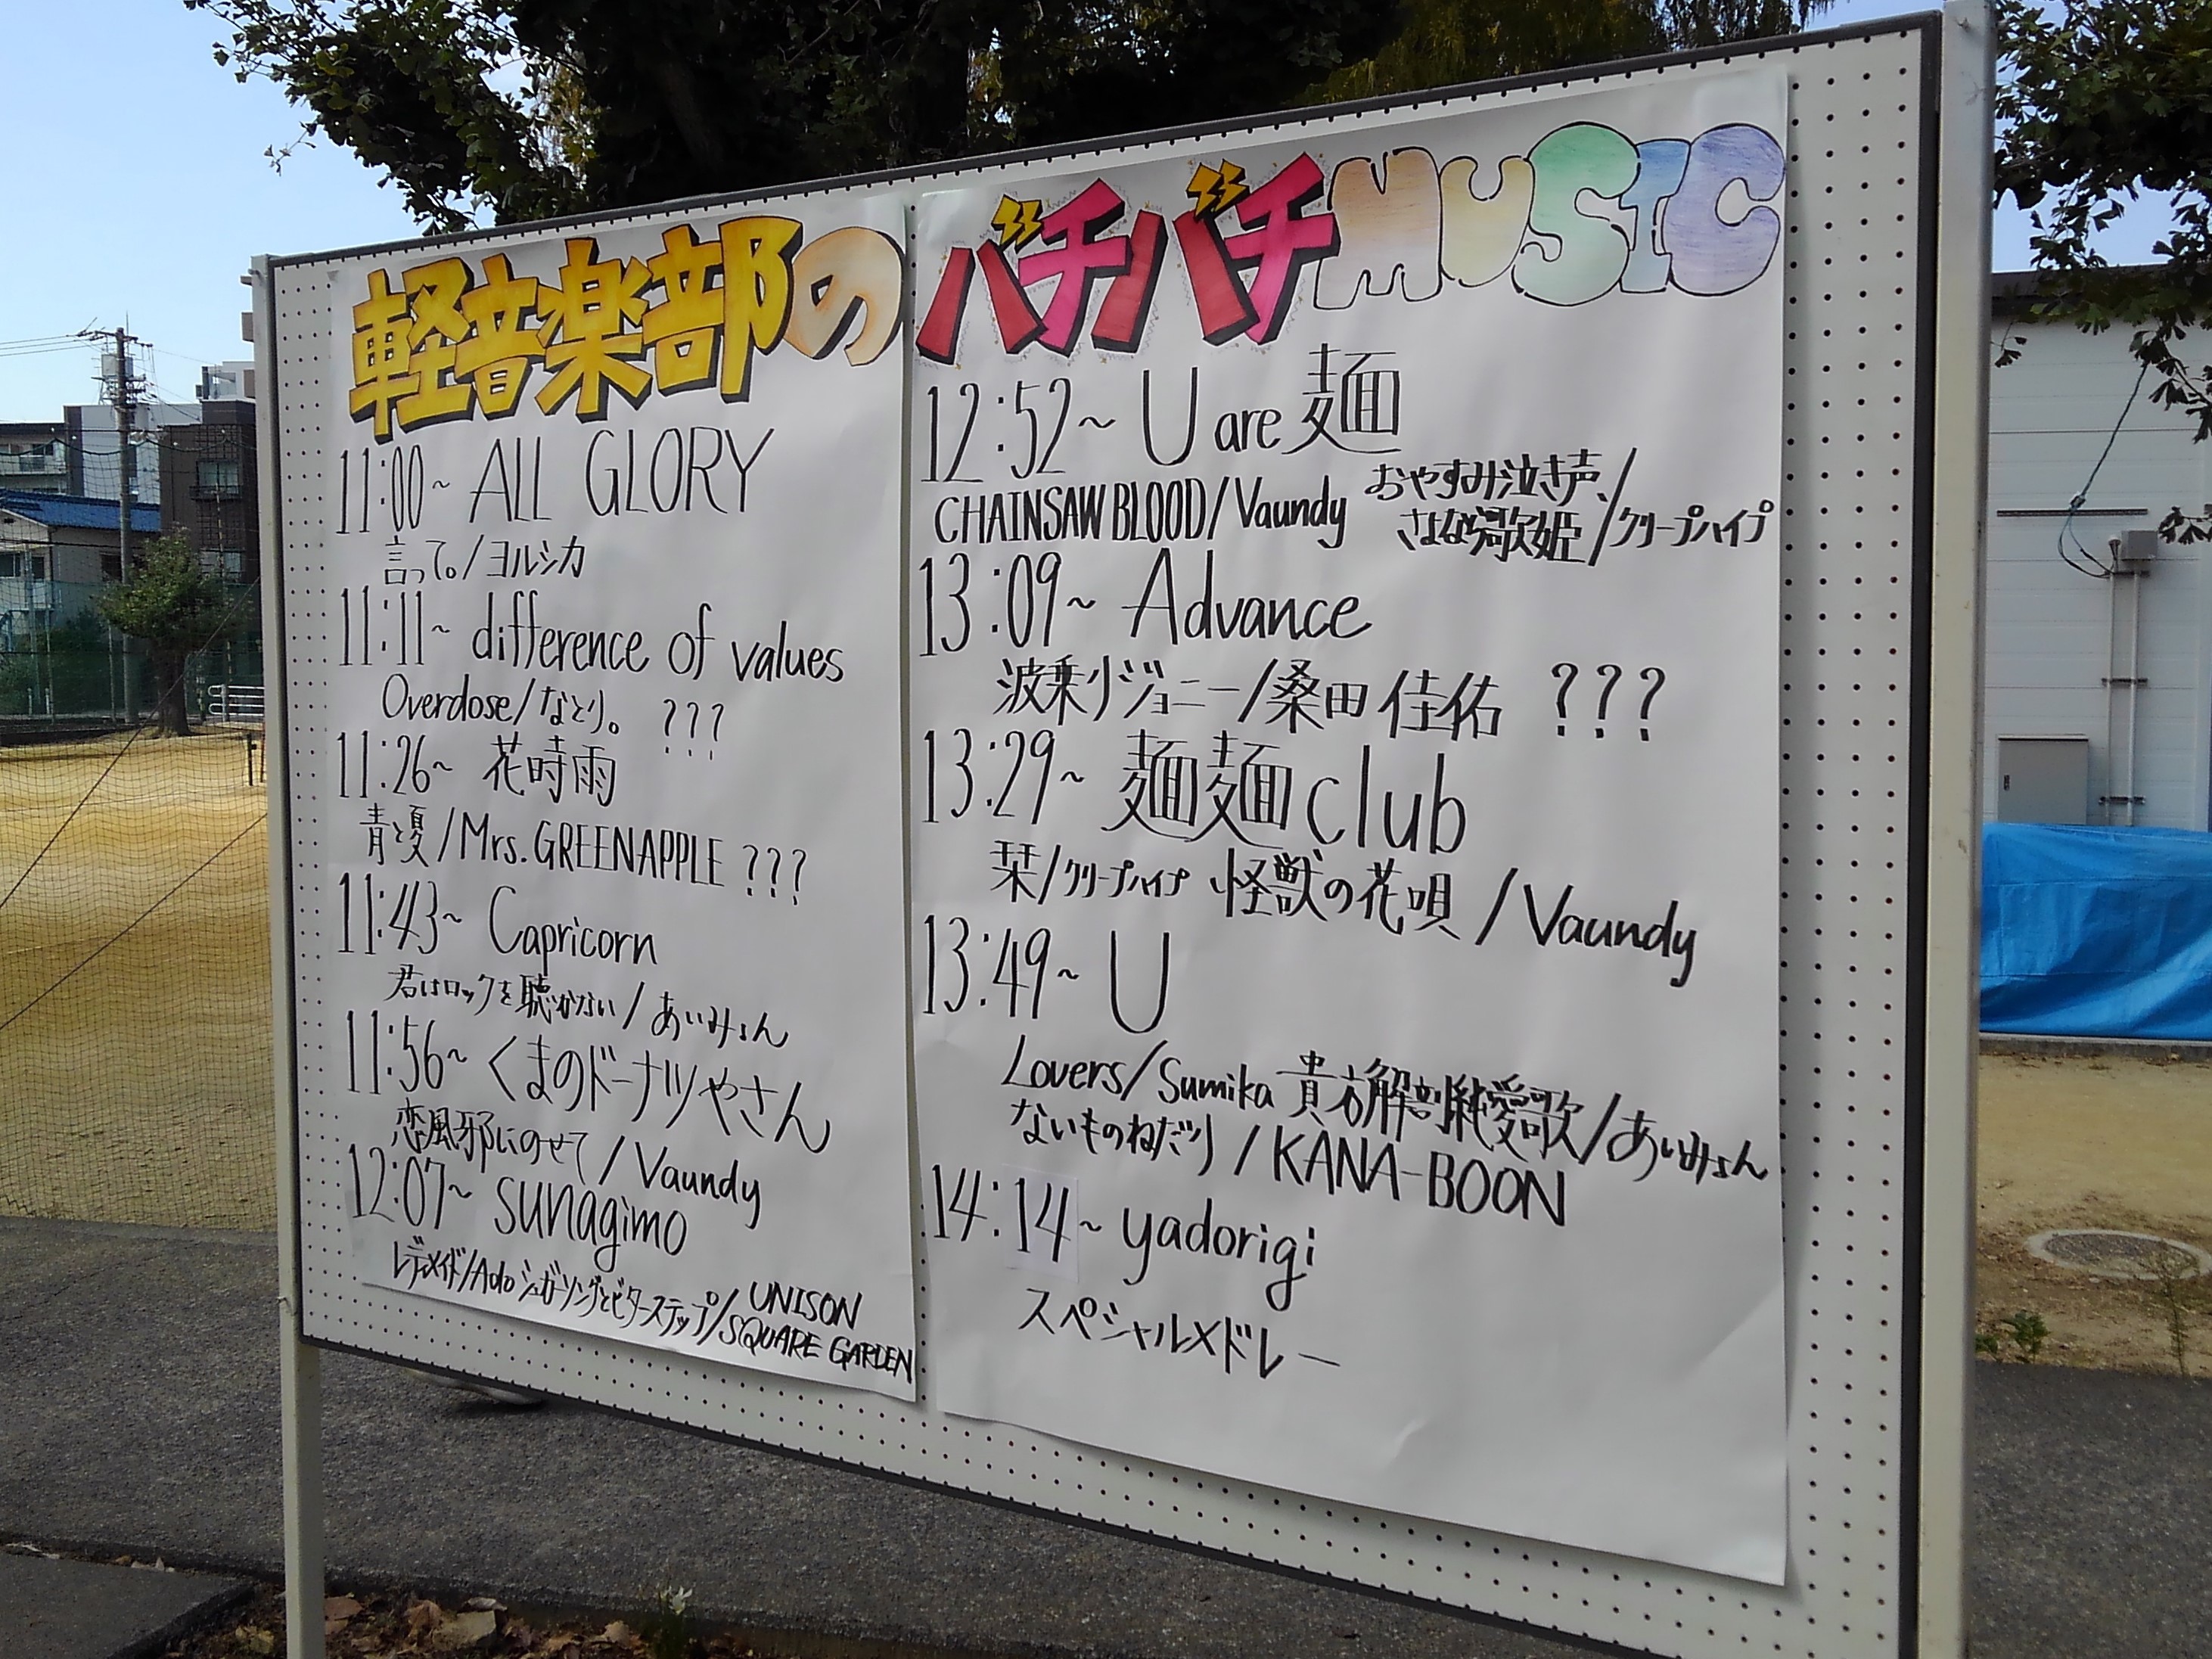 軽音楽部の
11:00~ ALL GLORY
言って。/ヨルシカ
11:11~ difference of values
Overdose/なとり。 ???
11:26~ 花時雨
青と夏/Mrs. GREEN APPLE ???
11:43~ Capricorn
君はロックを聴かない/あいみょん
11:56~ くまのドーナツやさん
恋風邪にのせて/Vaundy
12:07~ sunagimo
レディメイド/Ado シュガーソングとビターステップ/UNISON
SQUARE GARDEN
バチバチMUSIC
12:52~ U are 麺
CHAINSAW BLOOD/Vaundy おやすみ泣き声、
さよなら歌姫/クリープハイプ
13:09~ Advance
波乗りジョニー/桑田佳佑 ???
13:29~ 麺麺club
栞/クリープハイプ 怪獣の花唄/Vaundy
13:49~ U
Lovers/Sumika 貴方解剖純愛歌/あいみょん
ないものねだり/KANA-BOON
14:14~ yadorigi
スペシャルメドレー